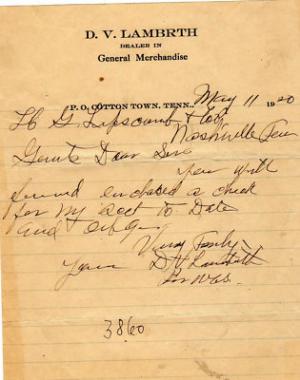 D. V. LAMBRTH
DEALER IN
General Merchandise
P. O. COTTON TOWN, TENN., May 11 1920
H G Lipscomb & Co
Nashville Ten
Gents Dear Sirs
You will
find enclosed a check
for my acct to Date
and
Yours Very Truly
D V Lambrth
3860